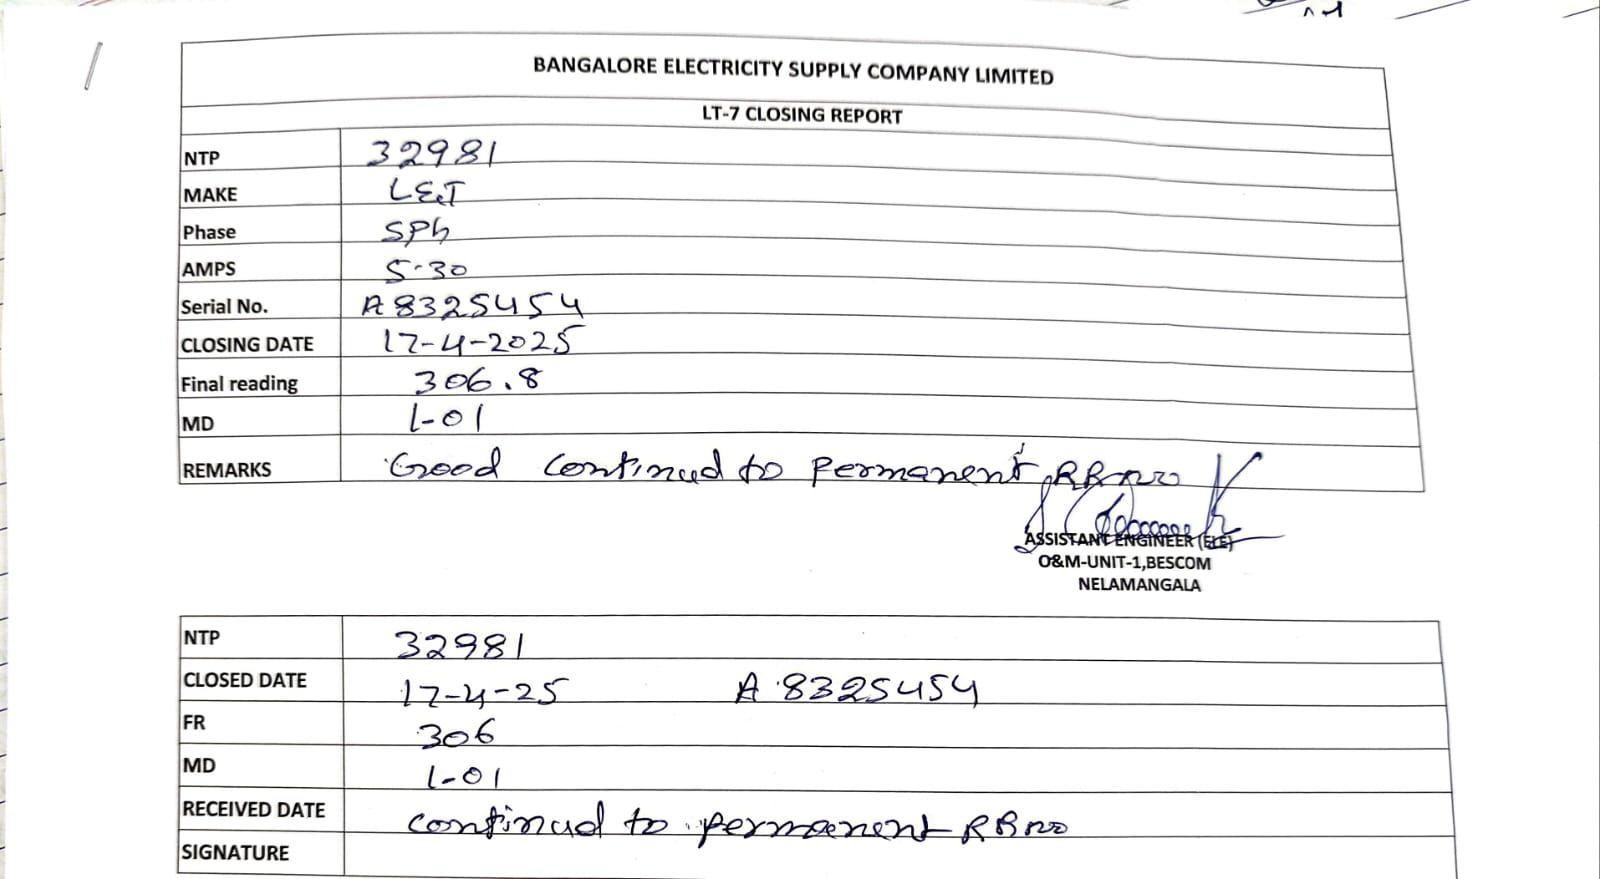 BANGALORE ELECTRICITY SUPPLY COMPANY LIMITED
LT-7 CLOSING REPORT
NTP 32981
MAKE L&T
Phase SPh
AMPS 5-30
Serial No. A 8325454
CLOSING DATE 17-4-2025
Final reading 306.8
MD 1-01
REMARKS Good continued to permanent RR no
ASSISTANT ENGINEER (ELE)
O&M-UNIT-1,BESCOM
NELAMANGALA
NTP 32981
CLOSED DATE 17-4-25 A 8325454
FR 306
MD 1-01
RECEIVED DATE continued to permanent RR no
SIGNATURE